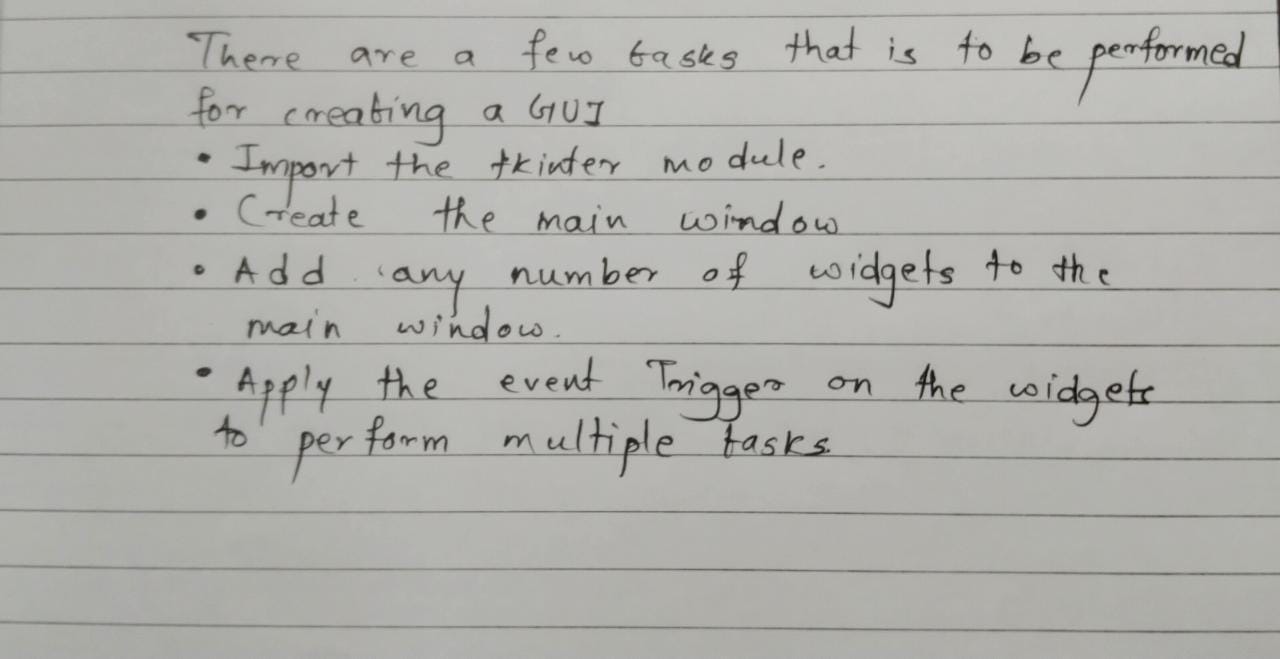 There are a few tasks that is to be performed
for creating a GUI
• Import the tkinter module.
• Create the main window
• Add any number of widgets to the
main window.
• Apply the event Trigger on the widgets
to perform multiple tasks.